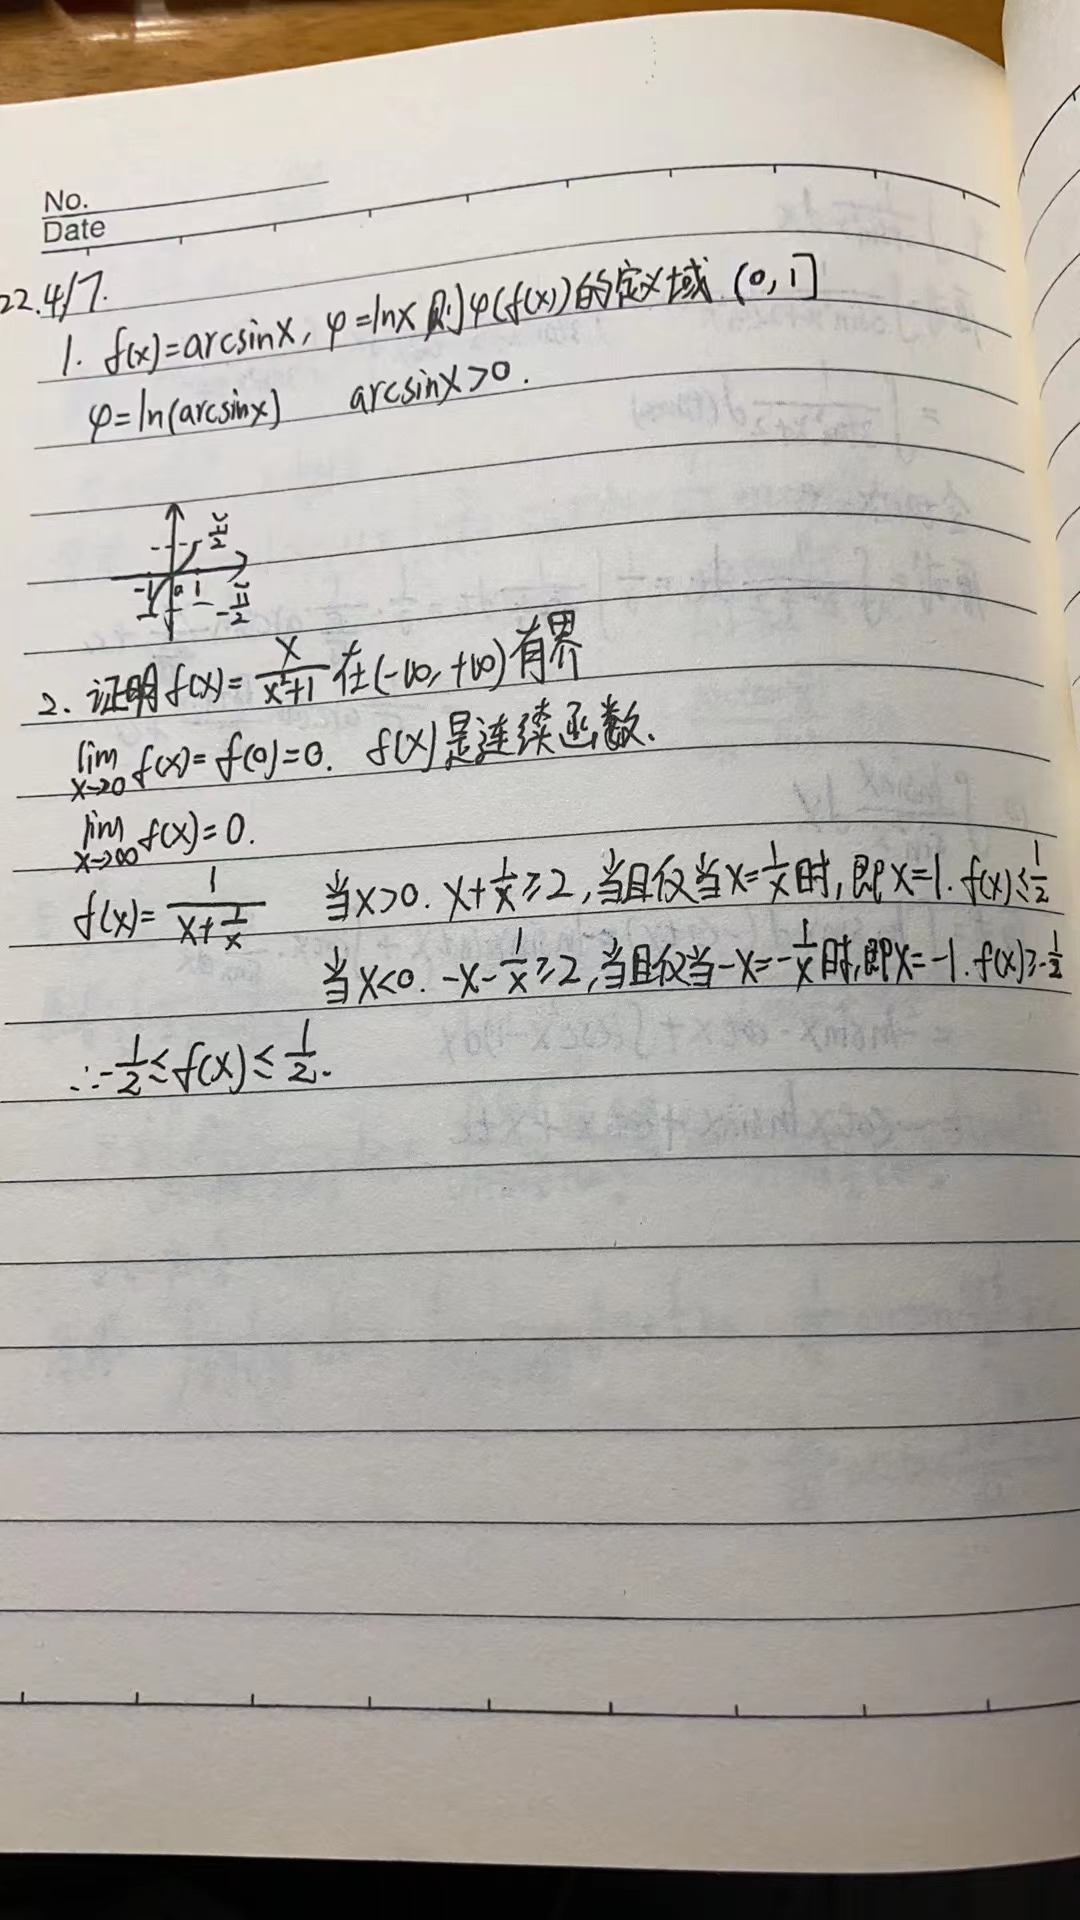 No.
Date
22.4/7.
1. f(x)=arcsinx, φ=lnx 则φ(f(x))的定义域 (0,1]
φ=ln(arcsinx) arcsinx>0.
π/2
-1 0 1 -π/2
2. 证明f(x)=x/(x²+1)在(-∞,+∞)有界
lim x→0 f(x)=f(0)=0. f(x)是连续函数.
lim x→∞ f(x)=0.
f(x)=1/(x+1/x) 当x>0. x+1/x≥2,当且仅当x=1/x时,即x=1. f(x)≤1/2
当x<0. -x-1/x≥2,当且仅当-x=-1/x时,即x=-1. f(x)≥-1/2
∴-1/2≤f(x)≤1/2.